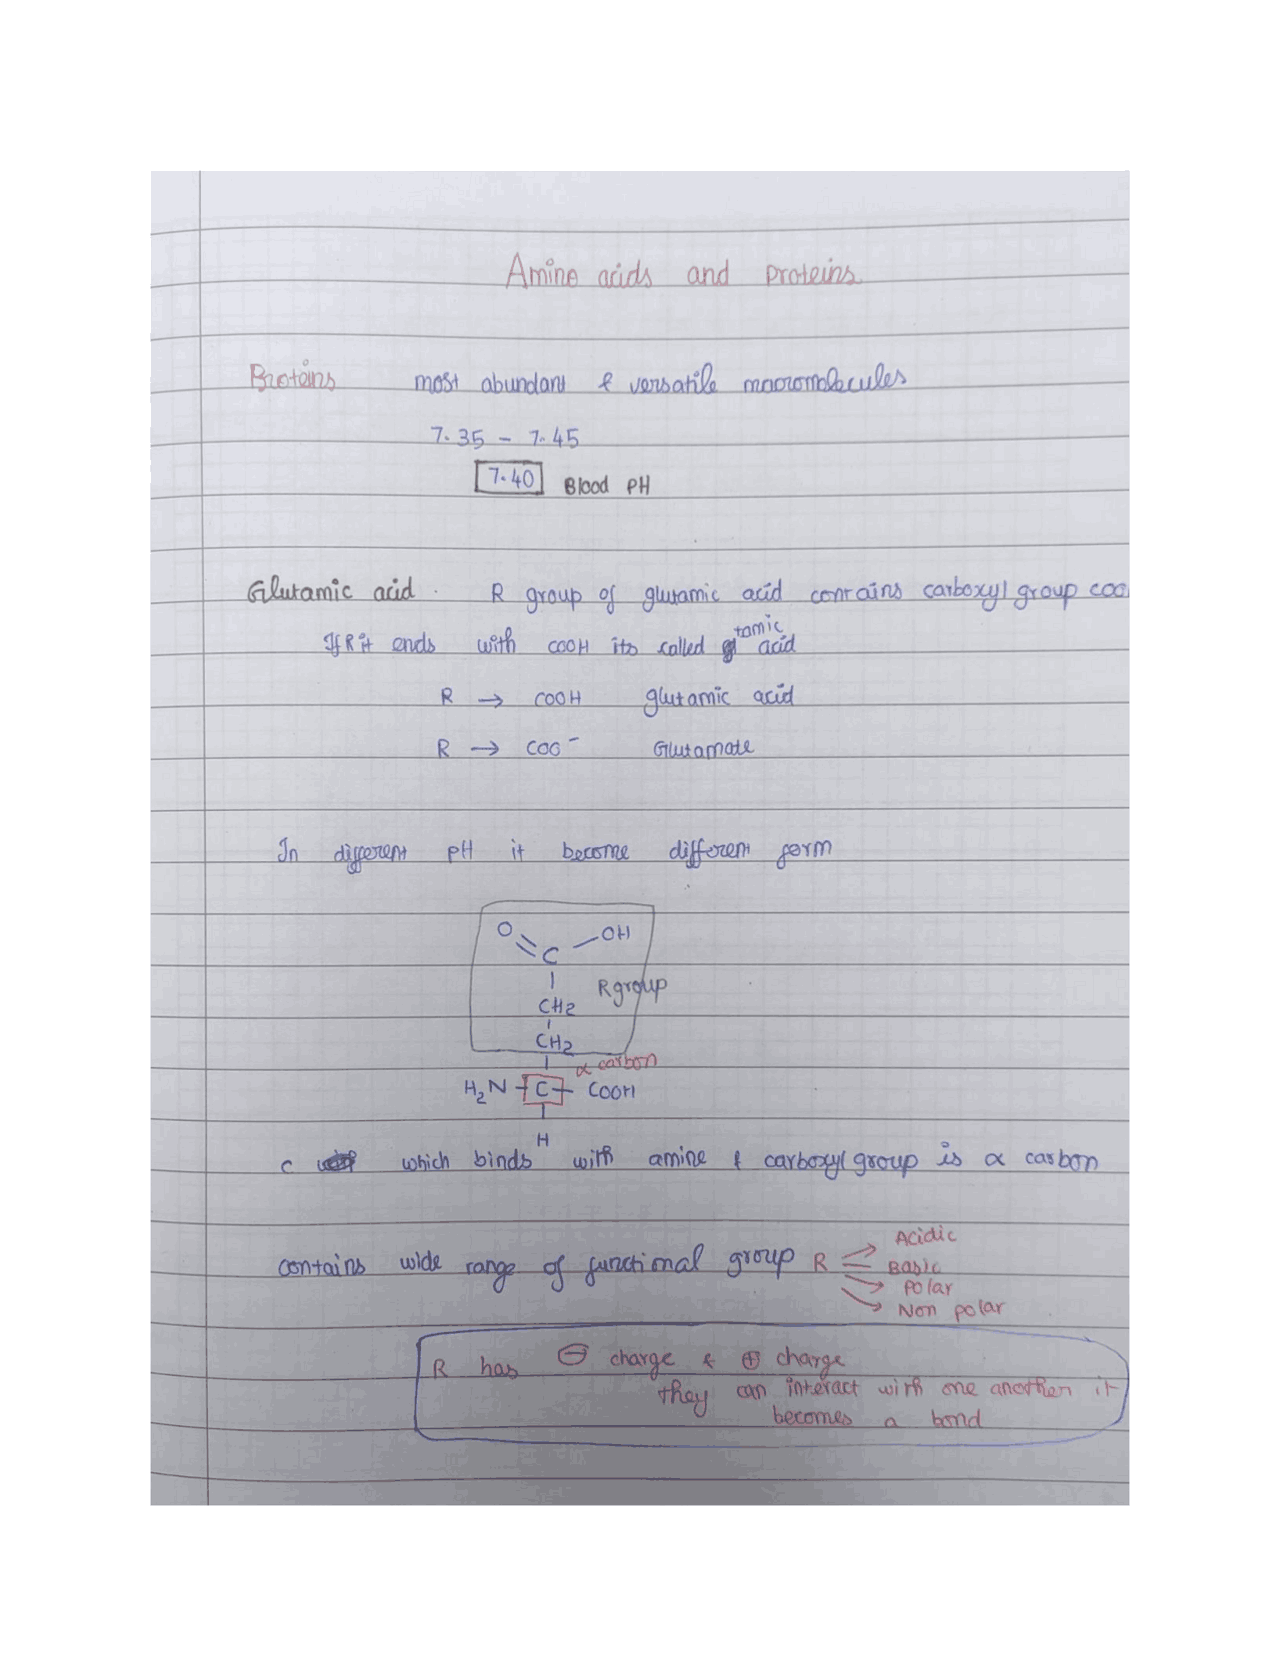 Amino acids and proteins
Proteins most abundant & versatile macromolecules
7.35 - 7.45
7.40 Blood PH
Glutamic acid. R group of glutamic acid contains carboxyl group coo
If R it ends with COOH its called tamic acid
R → COOH glutamic acid
R → COO⁻ Glutamate
In different pH it become different form
O OH
C
R group
CH2
CH2
α carbon
H₂N C COOH
H
C which binds with amine & carboxyl group is α carbon
Acidic
contains wide range of functional group R Basic
Polar
Non polar
R has ⊖ charge & ⊕ charge
they can interact with one another it
becomes a bond